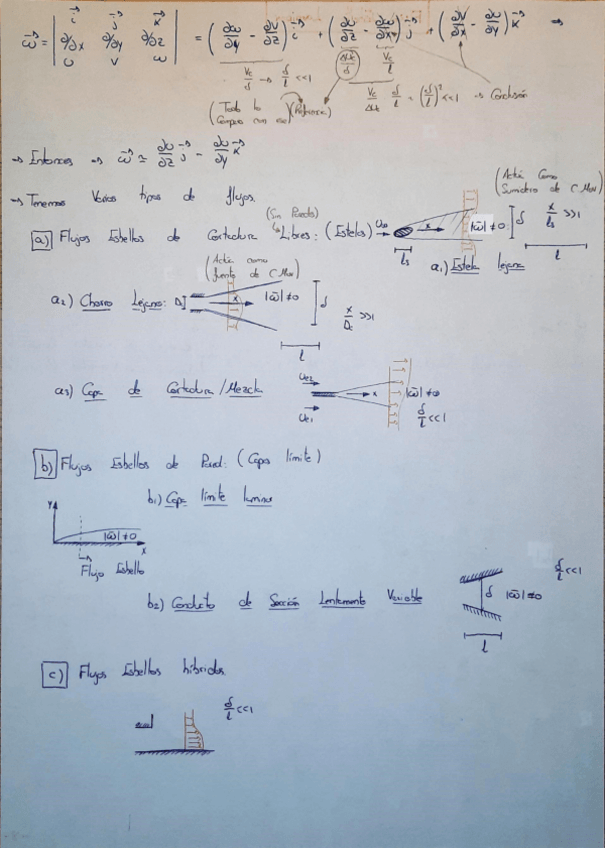 ω⃗ = | i⃗ j⃗ k⃗ ; ∂/∂x ∂/∂y ∂/∂z ; u v w | = (∂w/∂y - ∂v/∂z) i⃗ + (∂u/∂z - ∂w/∂x) j⃗ + (∂v/∂x - ∂u/∂y) k⃗ ⇒
Vc/δ → δ/l <<1
ΔUc/δ
Vc/l
Vc/ΔUc δ/l ~ (δ/l)² <<1 → Conclusión
(Todo lo comparo con ese) (Referencia)
→ Entonces → ω⃗ ≃ ∂u/∂z j⃗ - ∂u/∂y k⃗
→ Tenemos Varios tipos de flujos.
(Actúa Como Sumidero de C. Mov)
a) Flujos Esbeltos de Cortadura (Sin Pared) Libres: (Estelas) U∞ x |ω̄|≠0 δ x/ls >>1
ls l
a1) Estela lejana
(Actúa como fuente de C. Mov)
a2) Chorro Lejano: D x |ω̄|≠0 δ x/D >>1
l
a3) Capa de Cortadura/Mezcla Ue2 Ue1 x |ω̄|≠0 δ/l <<1
b) Flujos Esbeltos de Pared: (Capa límite)
b1) Capa límite laminar
y |ω̄|≠0 x
Flujo Esbelto
b2) Conducto de Sección Lentamente Variable δ |ω̄|≠0 δ/l <<1
l
c) Flujos Esbeltos híbridos
δ/l <<1